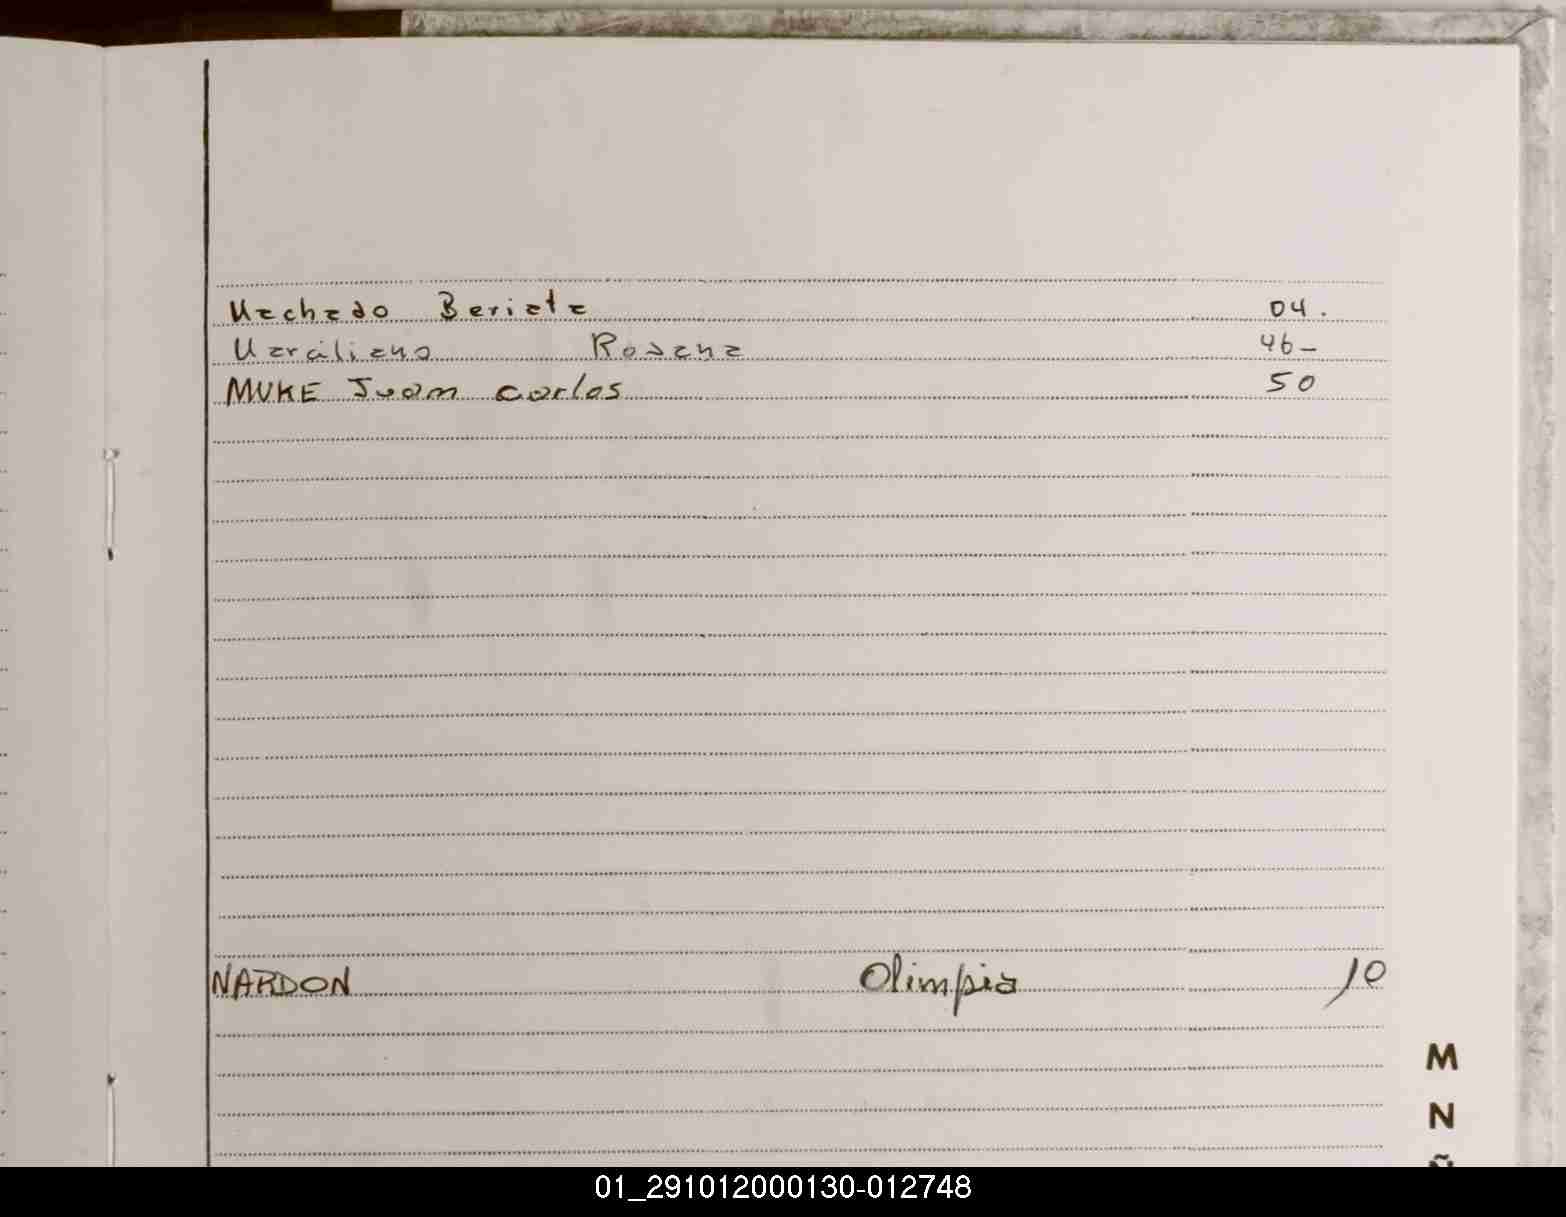 Machado Beriata 04.
Marciliano Rosana 46-
MUKE Juan Carlos 50
NARDON Olimpia 10
M
N
Ñ
01_291012000130-012748